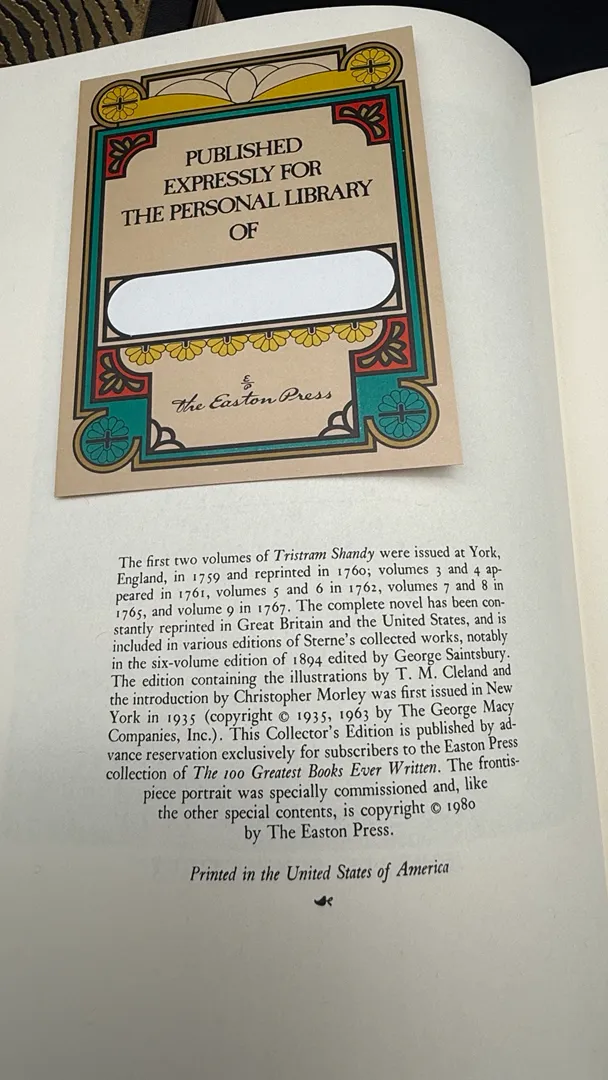 PUBLISHED
EXPRESSLY FOR
THE PERSONAL LIBRARY
OF
E/P
the Easton Press
The first two volumes of Tristram Shandy were issued at York,
England, in 1759 and reprinted in 1760; volumes 3 and 4 ap-
peared in 1761, volumes 5 and 6 in 1762, volumes 7 and 8 in
1765, and volume 9 in 1767. The complete novel has been con-
stantly reprinted in Great Britain and the United States, and is
included in various editions of Sterne's collected works, notably
in the six-volume edition of 1894 edited by George Saintsbury.
The edition containing the illustrations by T. M. Cleland and
the introduction by Christopher Morley was first issued in New
York in 1935 (copyright © 1935, 1963 by The George Macy
Companies, Inc.). This Collector's Edition is published by ad-
vance reservation exclusively for subscribers to the Easton Press
collection of The 100 Greatest Books Ever Written. The frontis-
piece portrait was specially commissioned and, like
the other special contents, is copyright © 1980
by The Easton Press.
Printed in the United States of America